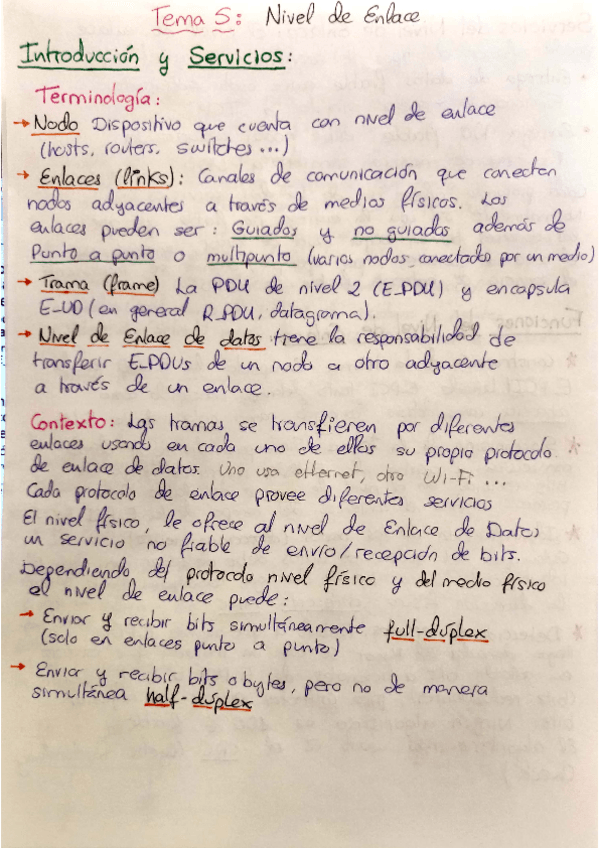 Tema 5: Nivel de Enlace
Introducción y Servicios:
Terminología:
→ Nodo Dispositivo que cuenta con nivel de enlace
(hosts, routers, switches...)
→ Enlaces (links): Canales de comunicación que conectan
nodos adyacentes a través de medios físicos. Los
enlaces pueden ser: Guiados y no guiados además de
Punto a punto o multipunto (varios nodos conectados por un medio)
→ Trama (frame) La PDU de nivel 2 (E_PDU) y encapsula
E_UD (en general R_PDU, datagrama).
→ Nivel de Enlace de datos tiene la responsabilidad de
transferir E_PDUs de un nodo a otro adyacente
a través de un enlace.
Contexto: Las tramas se transfieren por diferentes
enlaces usando en cada uno de ellos su propio protocolo
de enlace de datos. Uno usa ethernet, otro Wi-Fi ...
Cada protocolo de enlace provee diferentes servicios
El nivel físico, le ofrece al nivel de Enlace de Datos
un servicio no fiable de envío/recepción de bits.
Dependiendo del protocolo nivel físico y del medio físico
el nivel de enlace puede:
→ Enviar y recibir bits simultáneamente full-dúplex
(solo en enlaces punto a punto)
→ Enviar y recibir bits o bytes, pero no de manera
simultánea half-dúplex